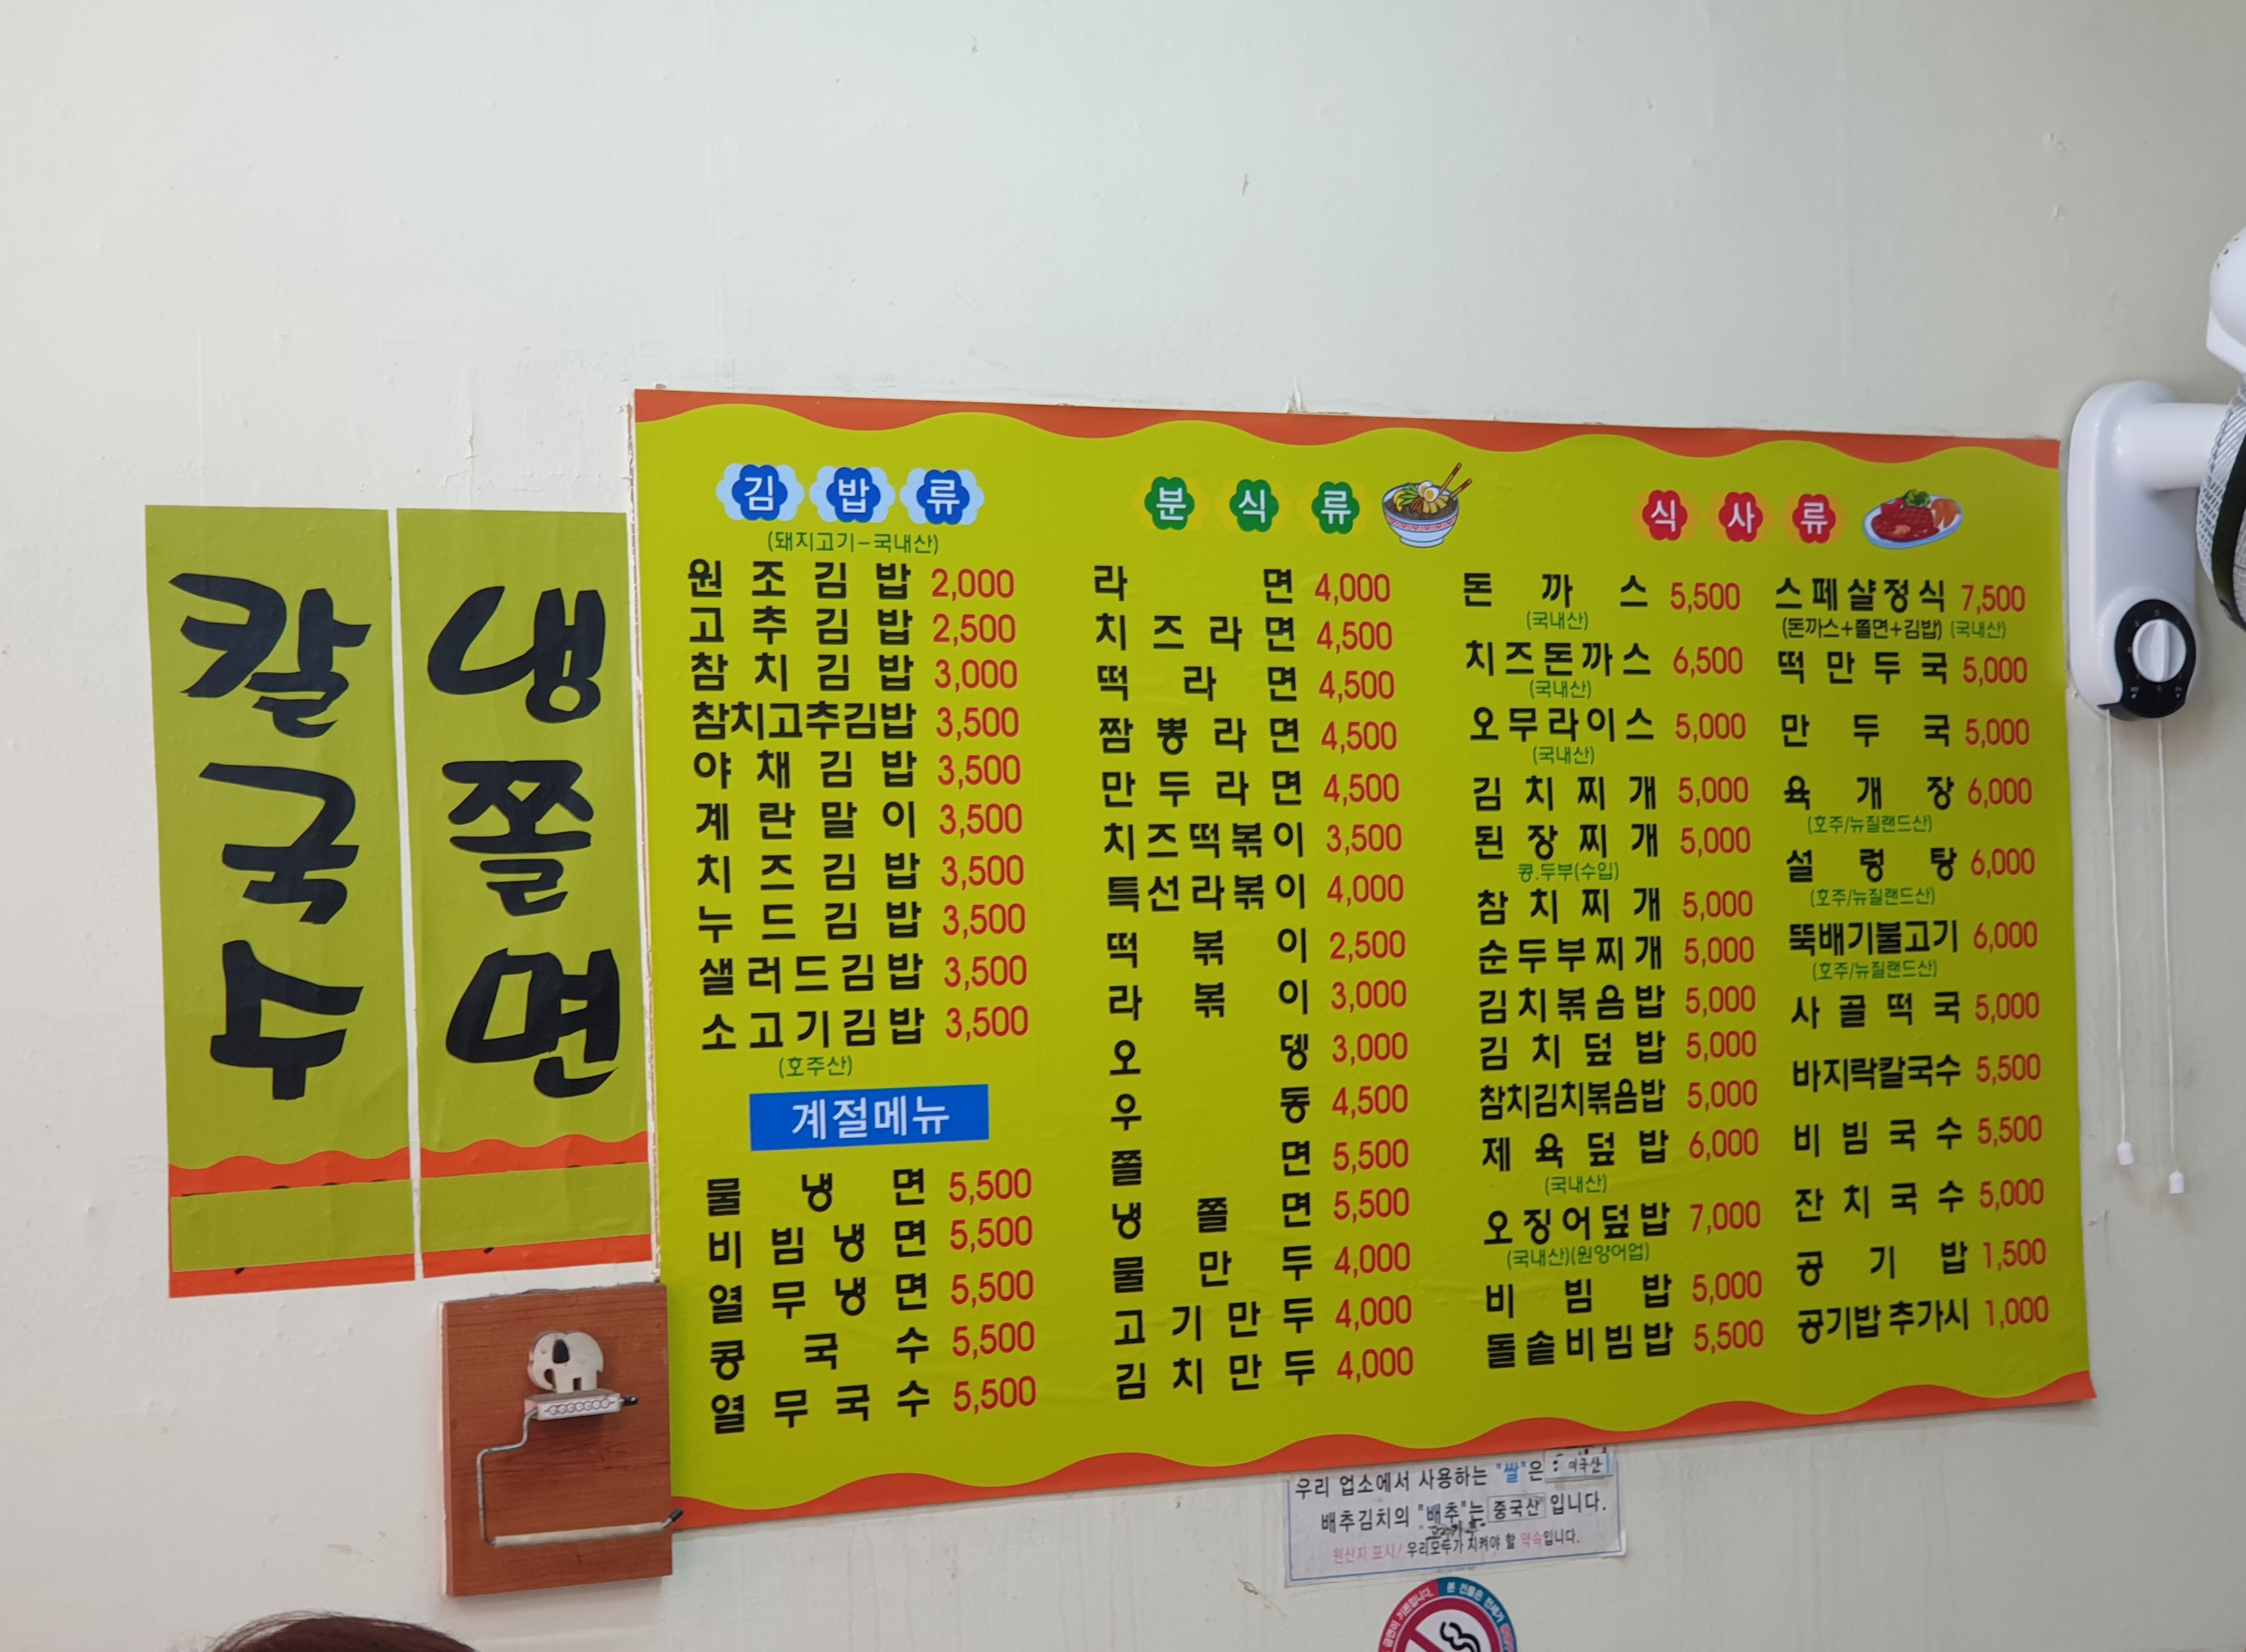 칼국수
냉쫄면
김밥류
(돼지고기-국내산)
원조김밥 2,000
고추김밥 2,500
참치김밥 3,000
참치고추김밥 3,500
야채김밥 3,500
계란말이 3,500
치즈김밥 3,500
누드김밥 3,500
샐러드김밥 3,500
소고기김밥 3,500
(호주산)
계절메뉴
물냉면 5,500
비빔냉면 5,500
열무냉면 5,500
콩국수 5,500
열무국수 5,500
분식류
라면 4,000
치즈라면 4,500
떡라면 4,500
짬뽕라면 4,500
만두라면 4,500
치즈떡볶이 3,500
특선라볶이 4,000
떡볶이 2,500
라볶이 3,000
오뎅 3,000
우동 4,500
쫄면 5,500
냉쫄면 5,500
물만두 4,000
고기만두 4,000
김치만두 4,000
식사류
돈까스 5,500
(국내산)
치즈돈까스 6,500
(국내산)
오무라이스 5,000
(국내산)
김치찌개 5,000
된장찌개 5,000
콩.두부(수입)
참치찌개 5,000
순두부찌개 5,000
김치볶음밥 5,000
김치덮밥 5,000
참치김치볶음밥 5,000
제육덮밥 6,000
(국내산)
오징어덮밥 7,000
(국내산)(원양어업)
비빔밥 5,000
돌솥비빔밥 5,500
스페샬정식 7,500
(돈까스+쫄면+김밥) (국내산)
떡만두국 5,000
만두국 5,000
육개장 6,000
(호주/뉴질랜드산)
설렁탕 6,000
(호주/뉴질랜드산)
뚝배기불고기 6,000
(호주/뉴질랜드산)
사골떡국 5,000
바지락칼국수 5,500
비빔국수 5,500
잔치국수 5,000
공기밥 1,500
공기밥 추가시 1,000
우리 업소에서 사용하는 "쌀"은 미국산
배추김치의 "배추"는 중국산 입니다.
원산지 표시! 우리모두가 지켜야 할 약속입니다.